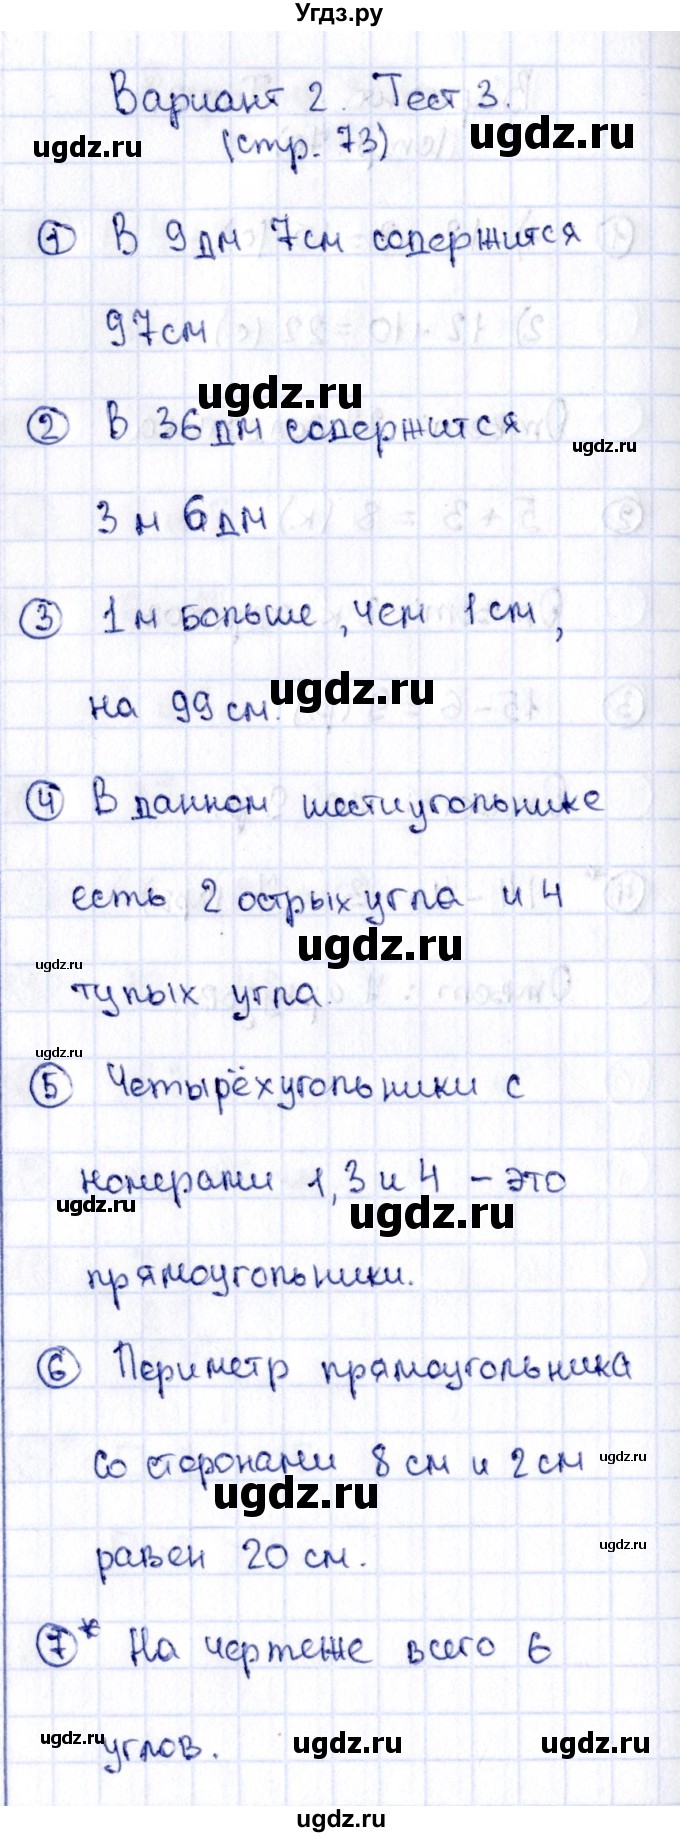 Угдз.ру
Вариант 2. Тест 3.
ugdz.ru (стр. 73) ugdz.ru
① В 9 дм 7 см содержится
97 см
ugdz.ru
② В 36 дм содержится
ugdz.ru
3 м 6 дм
③ 1 м больше, чем 1 см,
на 99 см. ugdz.ru
④ В данном шестиугольнике
есть 2 острых угла и 4
ugdz.ru
ugdz.ru
тупых угла.
ugdz.ru
⑤ Четырёхугольники с
номерами 1, 3 и 4 – это
ugdz.ru ugdz.ru
прямоугольники.
⑥ Периметр прямоугольника
со сторонами 8 см и 2 см ugdz.ru
ugdz.ru
равен 20 см. ugdz.ru
⑦* На чертеже всего 6
ugdz.ru углов. ugdz.ru ugdz.ru
ugdz.ru